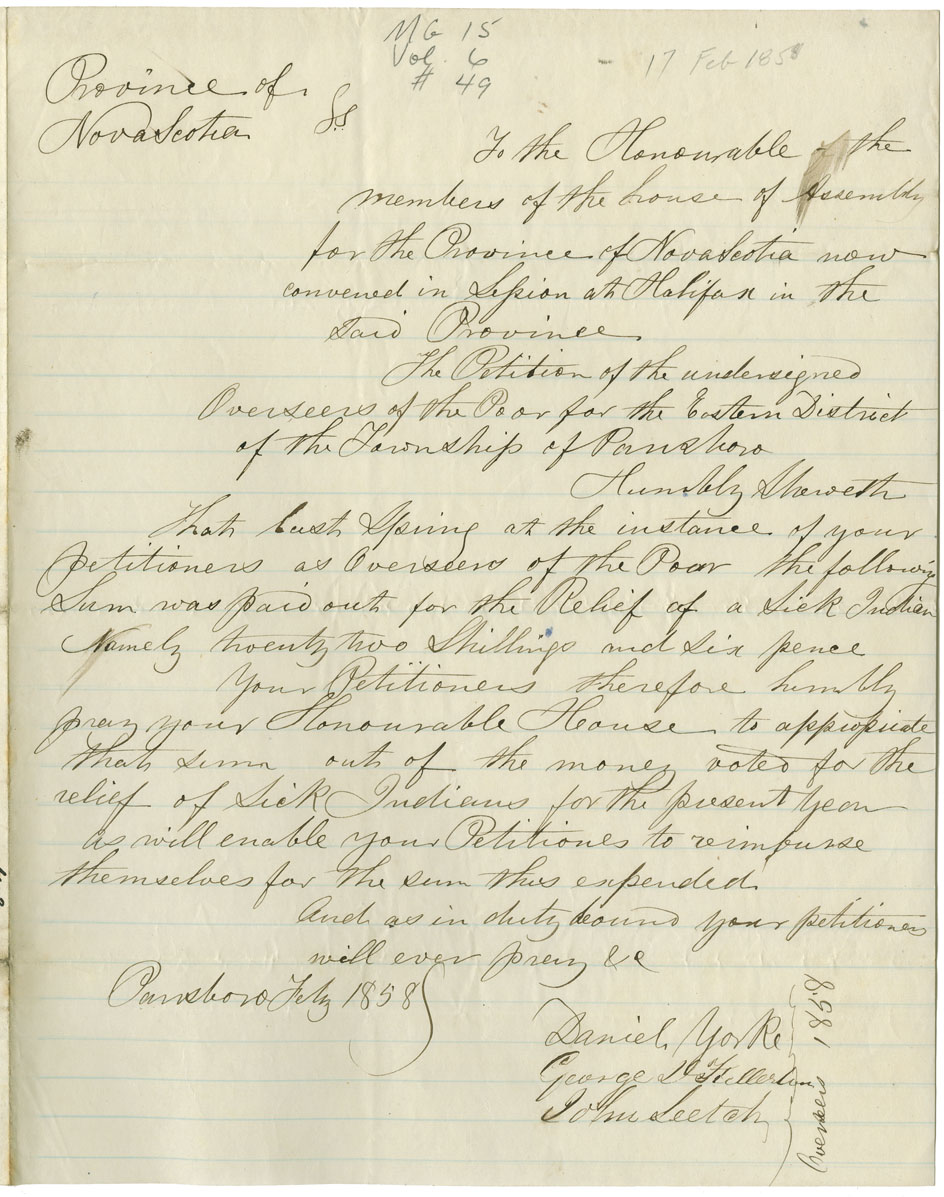 MG 15
Vol. 6
# 49
17 Feb 1858
Province of
Nova Scotia
SS
To the Honourable the
members of the house of Assembly
for the Province of Nova Scotia now
convened in Session at Halifax in the
Said Province
The Petition of the undersigned
Overseers of the Poor for the Eastern District
of the Township of Parrsboro
Humbly Sheweth
That last Spring at the instance of your
petitioners as Overseers of the Poor the following
Sum was paid out for the Relief of a Sick Indian
Namely twenty two Shillings and Six pence
Your Petitioners therefore humbly
pray your Honourable House to appropriate
that sum out of the money voted for the
relief of Sick Indians for the present year
as will enable your Petitiones to reimburse
themselves for the sum thus expended
And as in duty bound your petitioners
will ever pray &c
Parrsboro Feby 1858
Daniel Yorke
George D Fullerton
John Leetch
Overseers 1858